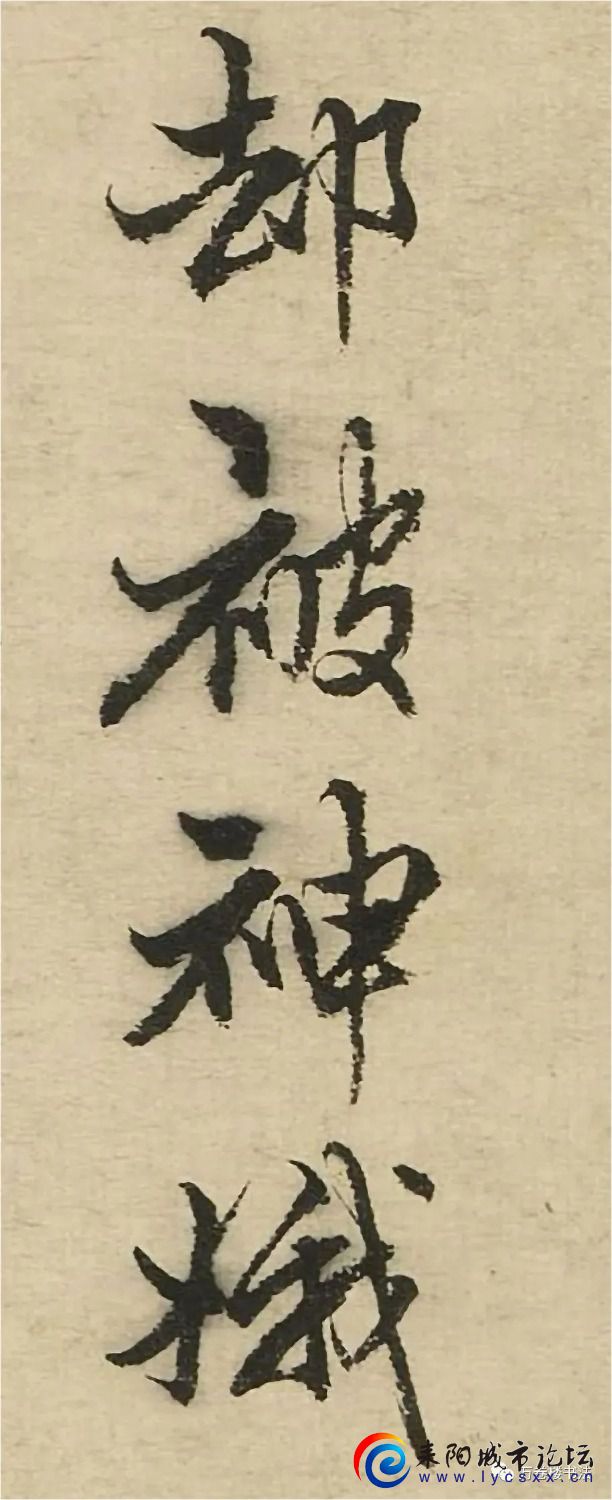 却
被
神
莱阳城市论坛
www.lycsxx.cn